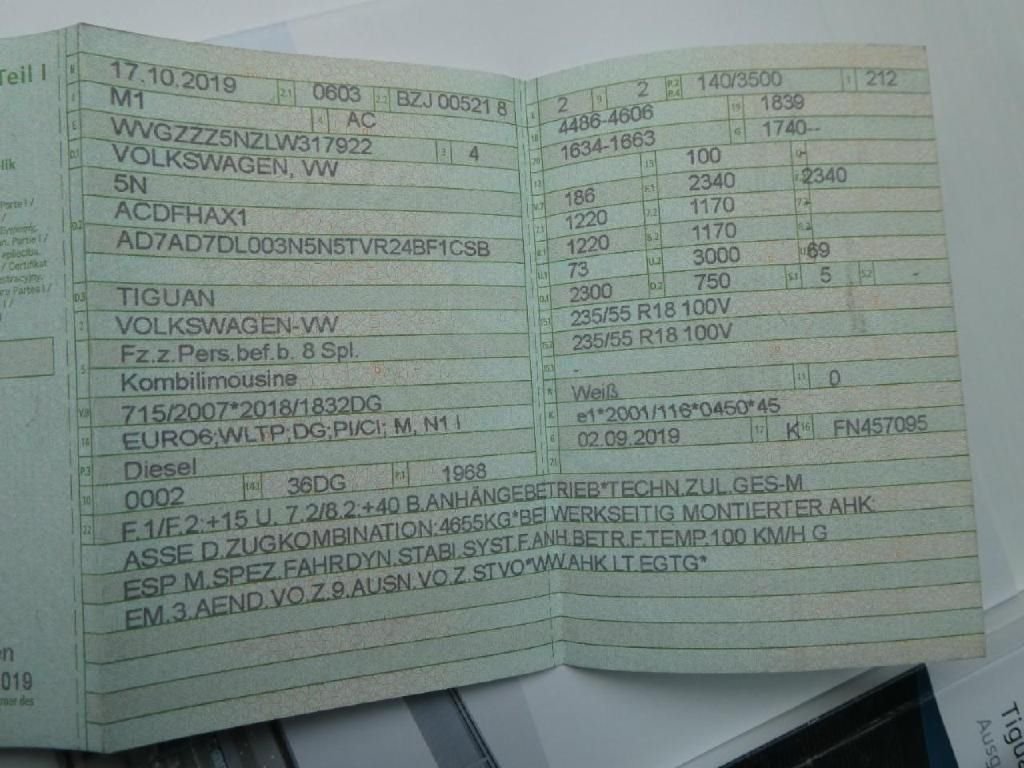 Teil I
17.10.2019 2.1 0603 2.2 BZJ 00521 8
M1 4 AC
WVGZZZ5NZLW317922 3 4
VOLKSWAGEN, VW
5N
ACDFHAX1
AD7AD7DL003N5N5TVR24BF1CSB
D.3 TIGUAN
2 VOLKSWAGEN-VW
Fz.z.Pers.bef.b. 8 Spl.
5 Kombilimousine
V.9 715/2007*2018/1832DG
14 EURO6;WLTP;DG;PI/CI; M, N1 I
P.3 Diesel
10 0002 14.1 36DG P.1 1968
22 F.1/F.2:+15 U. 7.2/8.2:+40 B.ANHÄNGEBETRIEB*TECHN.ZUL.GES-M
ASSE D.ZUGKOMBINATION:4655KG*BEI WERKSEITIG MONTIERTER AHK:
ESP M.SPEZ.FAHRDYN.STABI.SYST.F.ANH.BETR.F.TEMP.100 KM/H G
EM.3.AEND.VO.Z.9.AUSN.VO.Z.STVO*WW.AHK LT.EGTG*
2 9 2 P.2 P.4 140/3500 T 212
18 4486-4606 19 1839
20 1634-1663 G 1740--
100
186 2340 2340
1220 7.2 1170
1220 8.2 1170
U.1 73 U.2 3000 69
O.1 2300 O.2 750 S.1 5 S.2 -
15.1 235/55 R18 100V
15.2 235/55 R18 100V
15.3 -
R Weiß 11 0
K e1*2001/116*0450*45
6 02.09.2019 17 K 16 FN457095
21
019
Tigua
Ausg